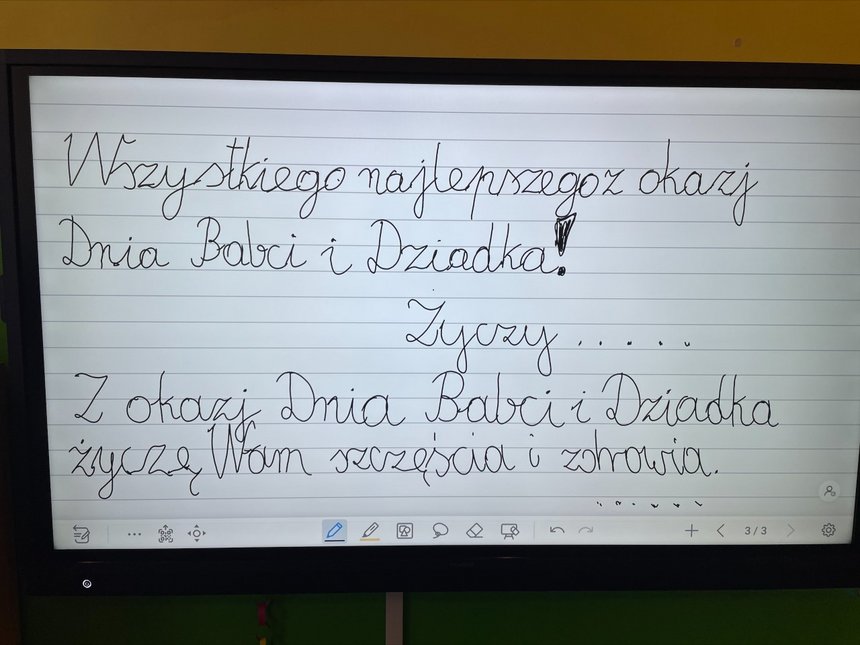 Wszystkiego najlepszego z okazj
Dnia Babci i Dziadka!
Życzy .....
Z okazj Dnia Babci i Dziadka
życzę Wam szczęścia i zdrowia.
.....
3/3